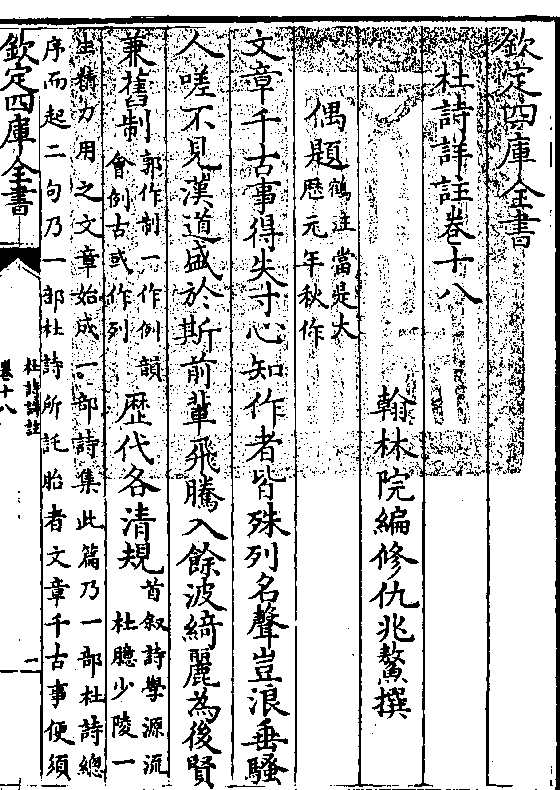 欽定四庫全書
杜詩詳註卷十八
翰林院編修仇兆鰲撰
偶題鶴註當是大
厯元年秋作
文章千古事得失寸心知作者皆殊列名聲豈浪垂騷
人嗟不見漢道盛於斯前輩飛騰入餘波綺麗為後賢
兼舊制郭作制一作例韻
會例古或作列歴代各清規首叙詩學源流
杜臆少陵一
生精力用之文章始成一部詩集此篇乃一部杜詩總
序而起二句乃一部杜詩所託胎者文章千古事便須
欽定四庫全書
杜詩詳註
卷十八
一